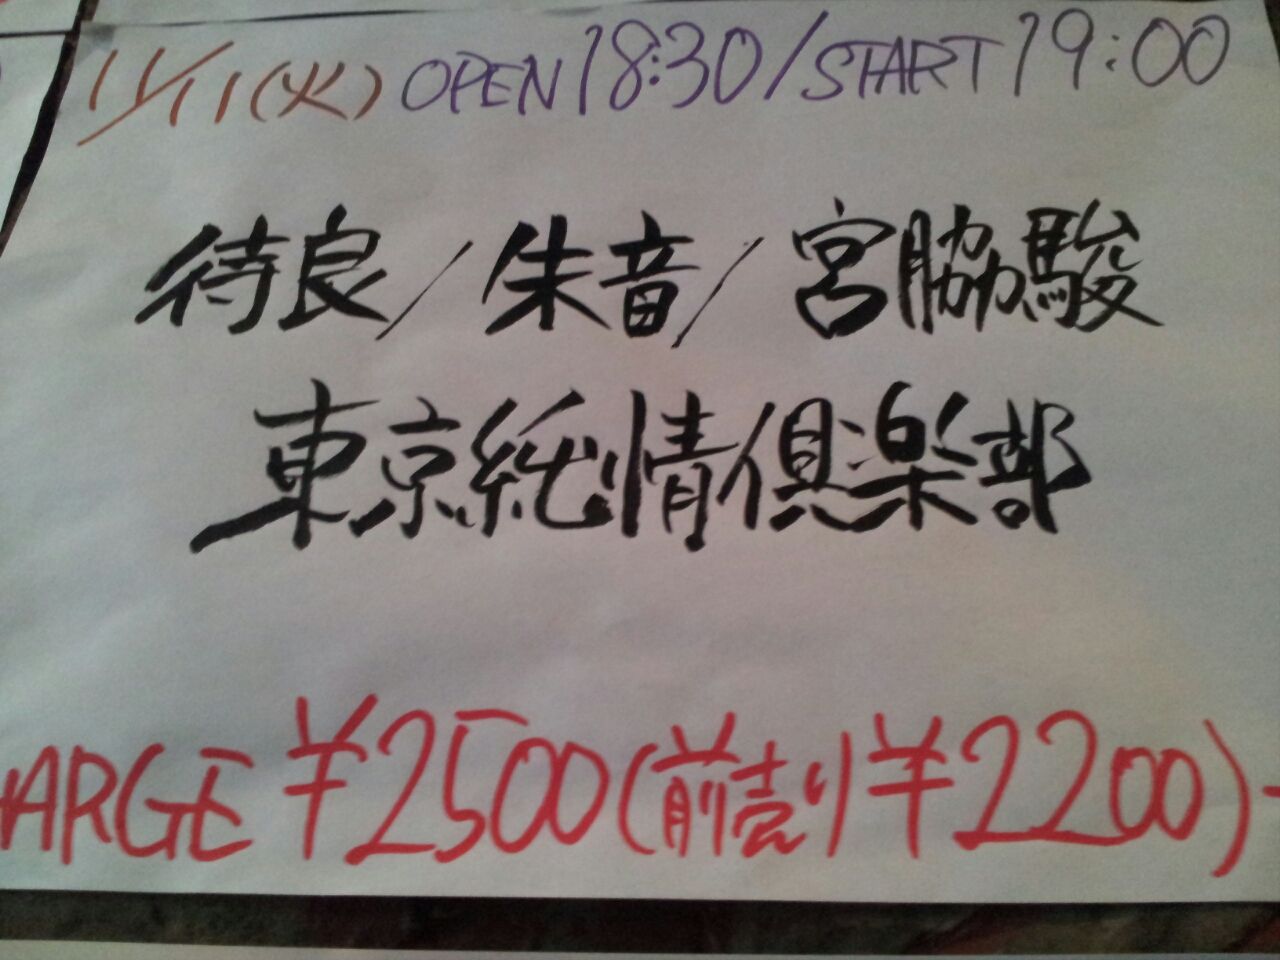 11/11(火) OPEN 18:30/START 19:00
待良/朱音/宮脇駿
東京純情倶楽部
HARGE ¥2500(前売り¥2200)